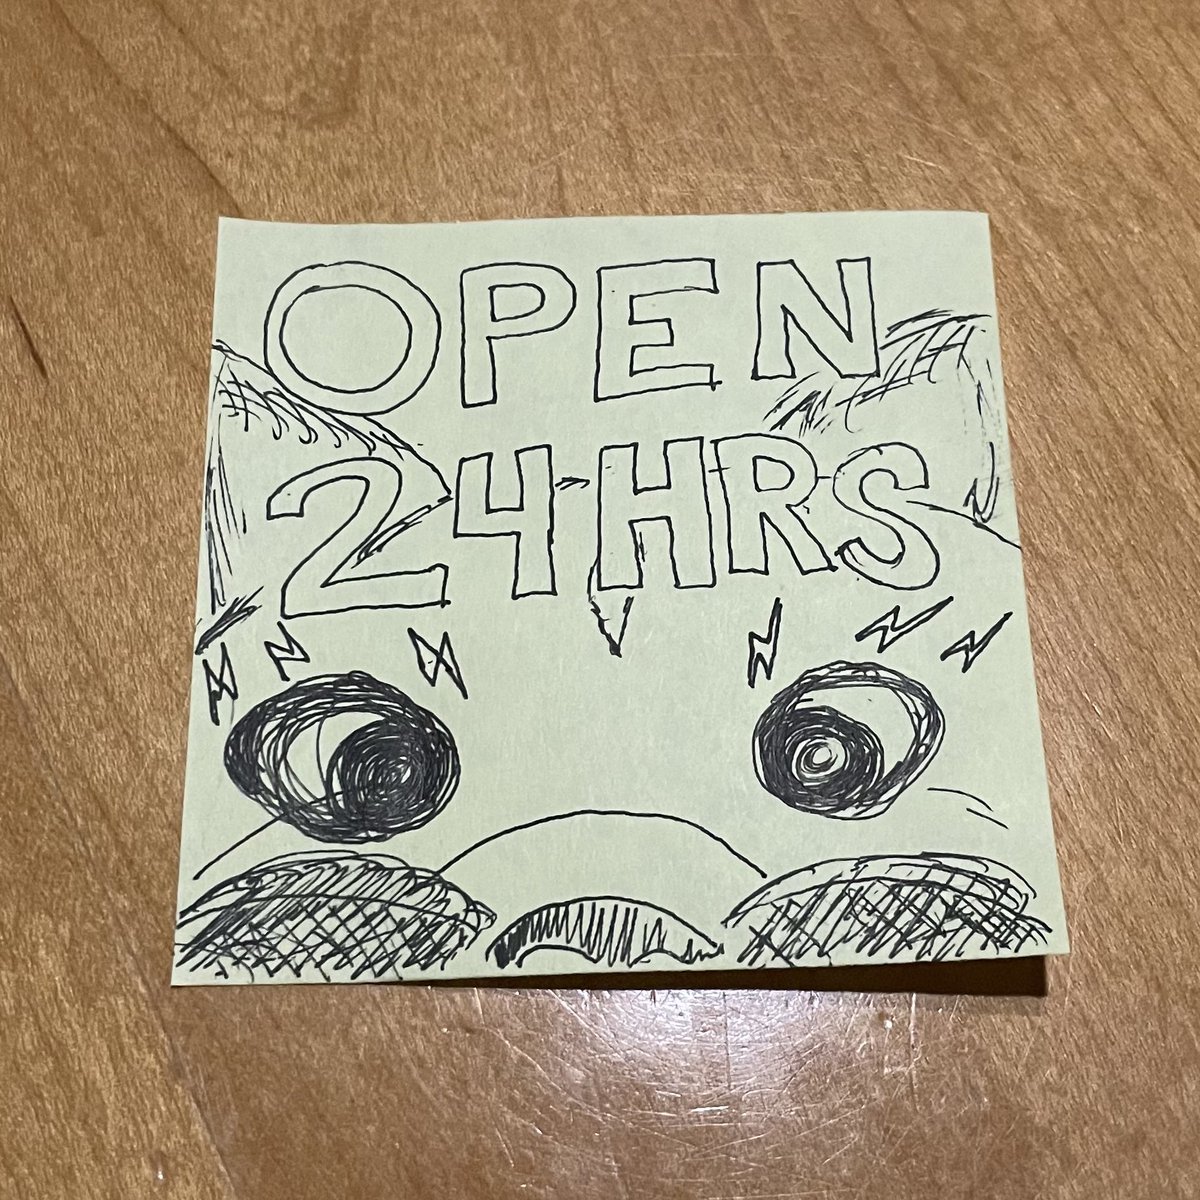 OPEN
24 HRS